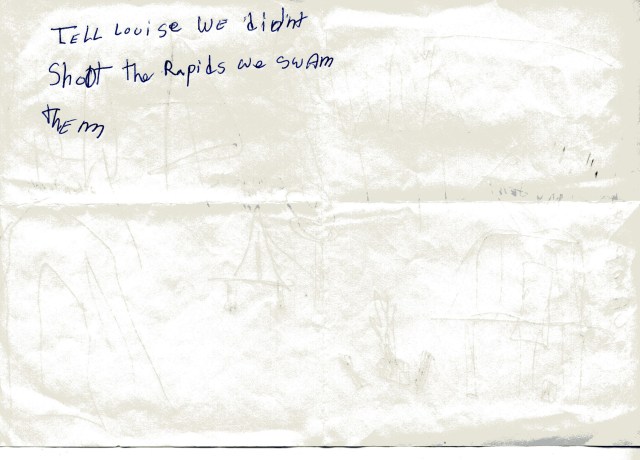 TELL Louise WE didnt
Shoot the Rapids we swAm
thEm